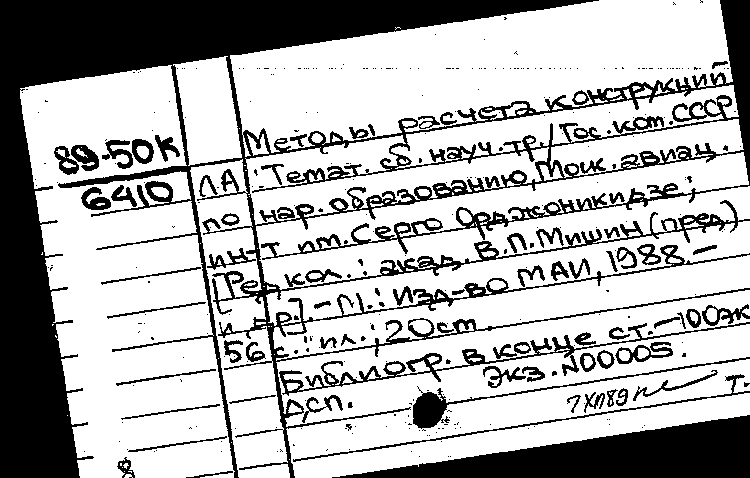 89-50К
6410
Методы расчета конструкций
ЛА : Темат. сб. науч. тр. / Гос. ком. СССР
по нар. образованию, Моск. авиац.
ин-т им. Серго Орджоникидзе ;
[Редкол. : акад. В.П. Мишин (пред)
и др.]. – М. : Изд-во МАИ, 1988. –
56 с. : ил. ; 20 см.
Библиогр. в конце ст. – 100 эк
ДСП. Экз. N00005.
7 XII 89
Т.
8